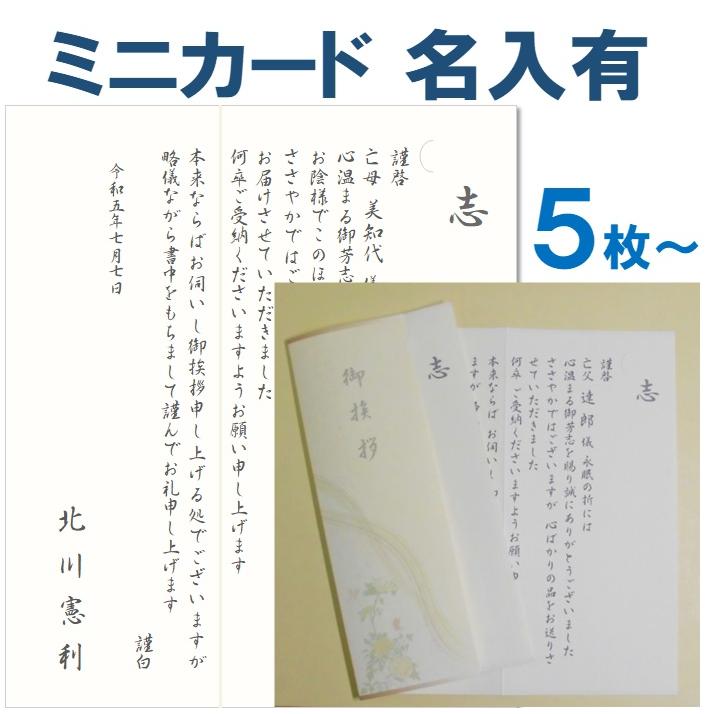 ミニカード 名入有
5枚～
志
謹啓
亡母 美知代
心温まる御芳志
お陰様でこのほ
ささやかではご
お届けさせていただきました
何卒ご受納くださいますようお願い申し上げます
本来ならばお伺いし御挨拶申し上げる処でございますが
略儀ながら書中をもちまして謹んでお礼申し上げます
謹白
令和五年七月七日
北川憲利
志
謹啓
亡父 達郎 儀 永眠の折には
心温まる御芳志を賜り誠にありがとうございました
ささやかではございますが 心ばかりの品をお送りさ
せていただきました
何卒 ご受納くださいますようお願い
本来ならば お伺いし
ますが
志
御挨拶